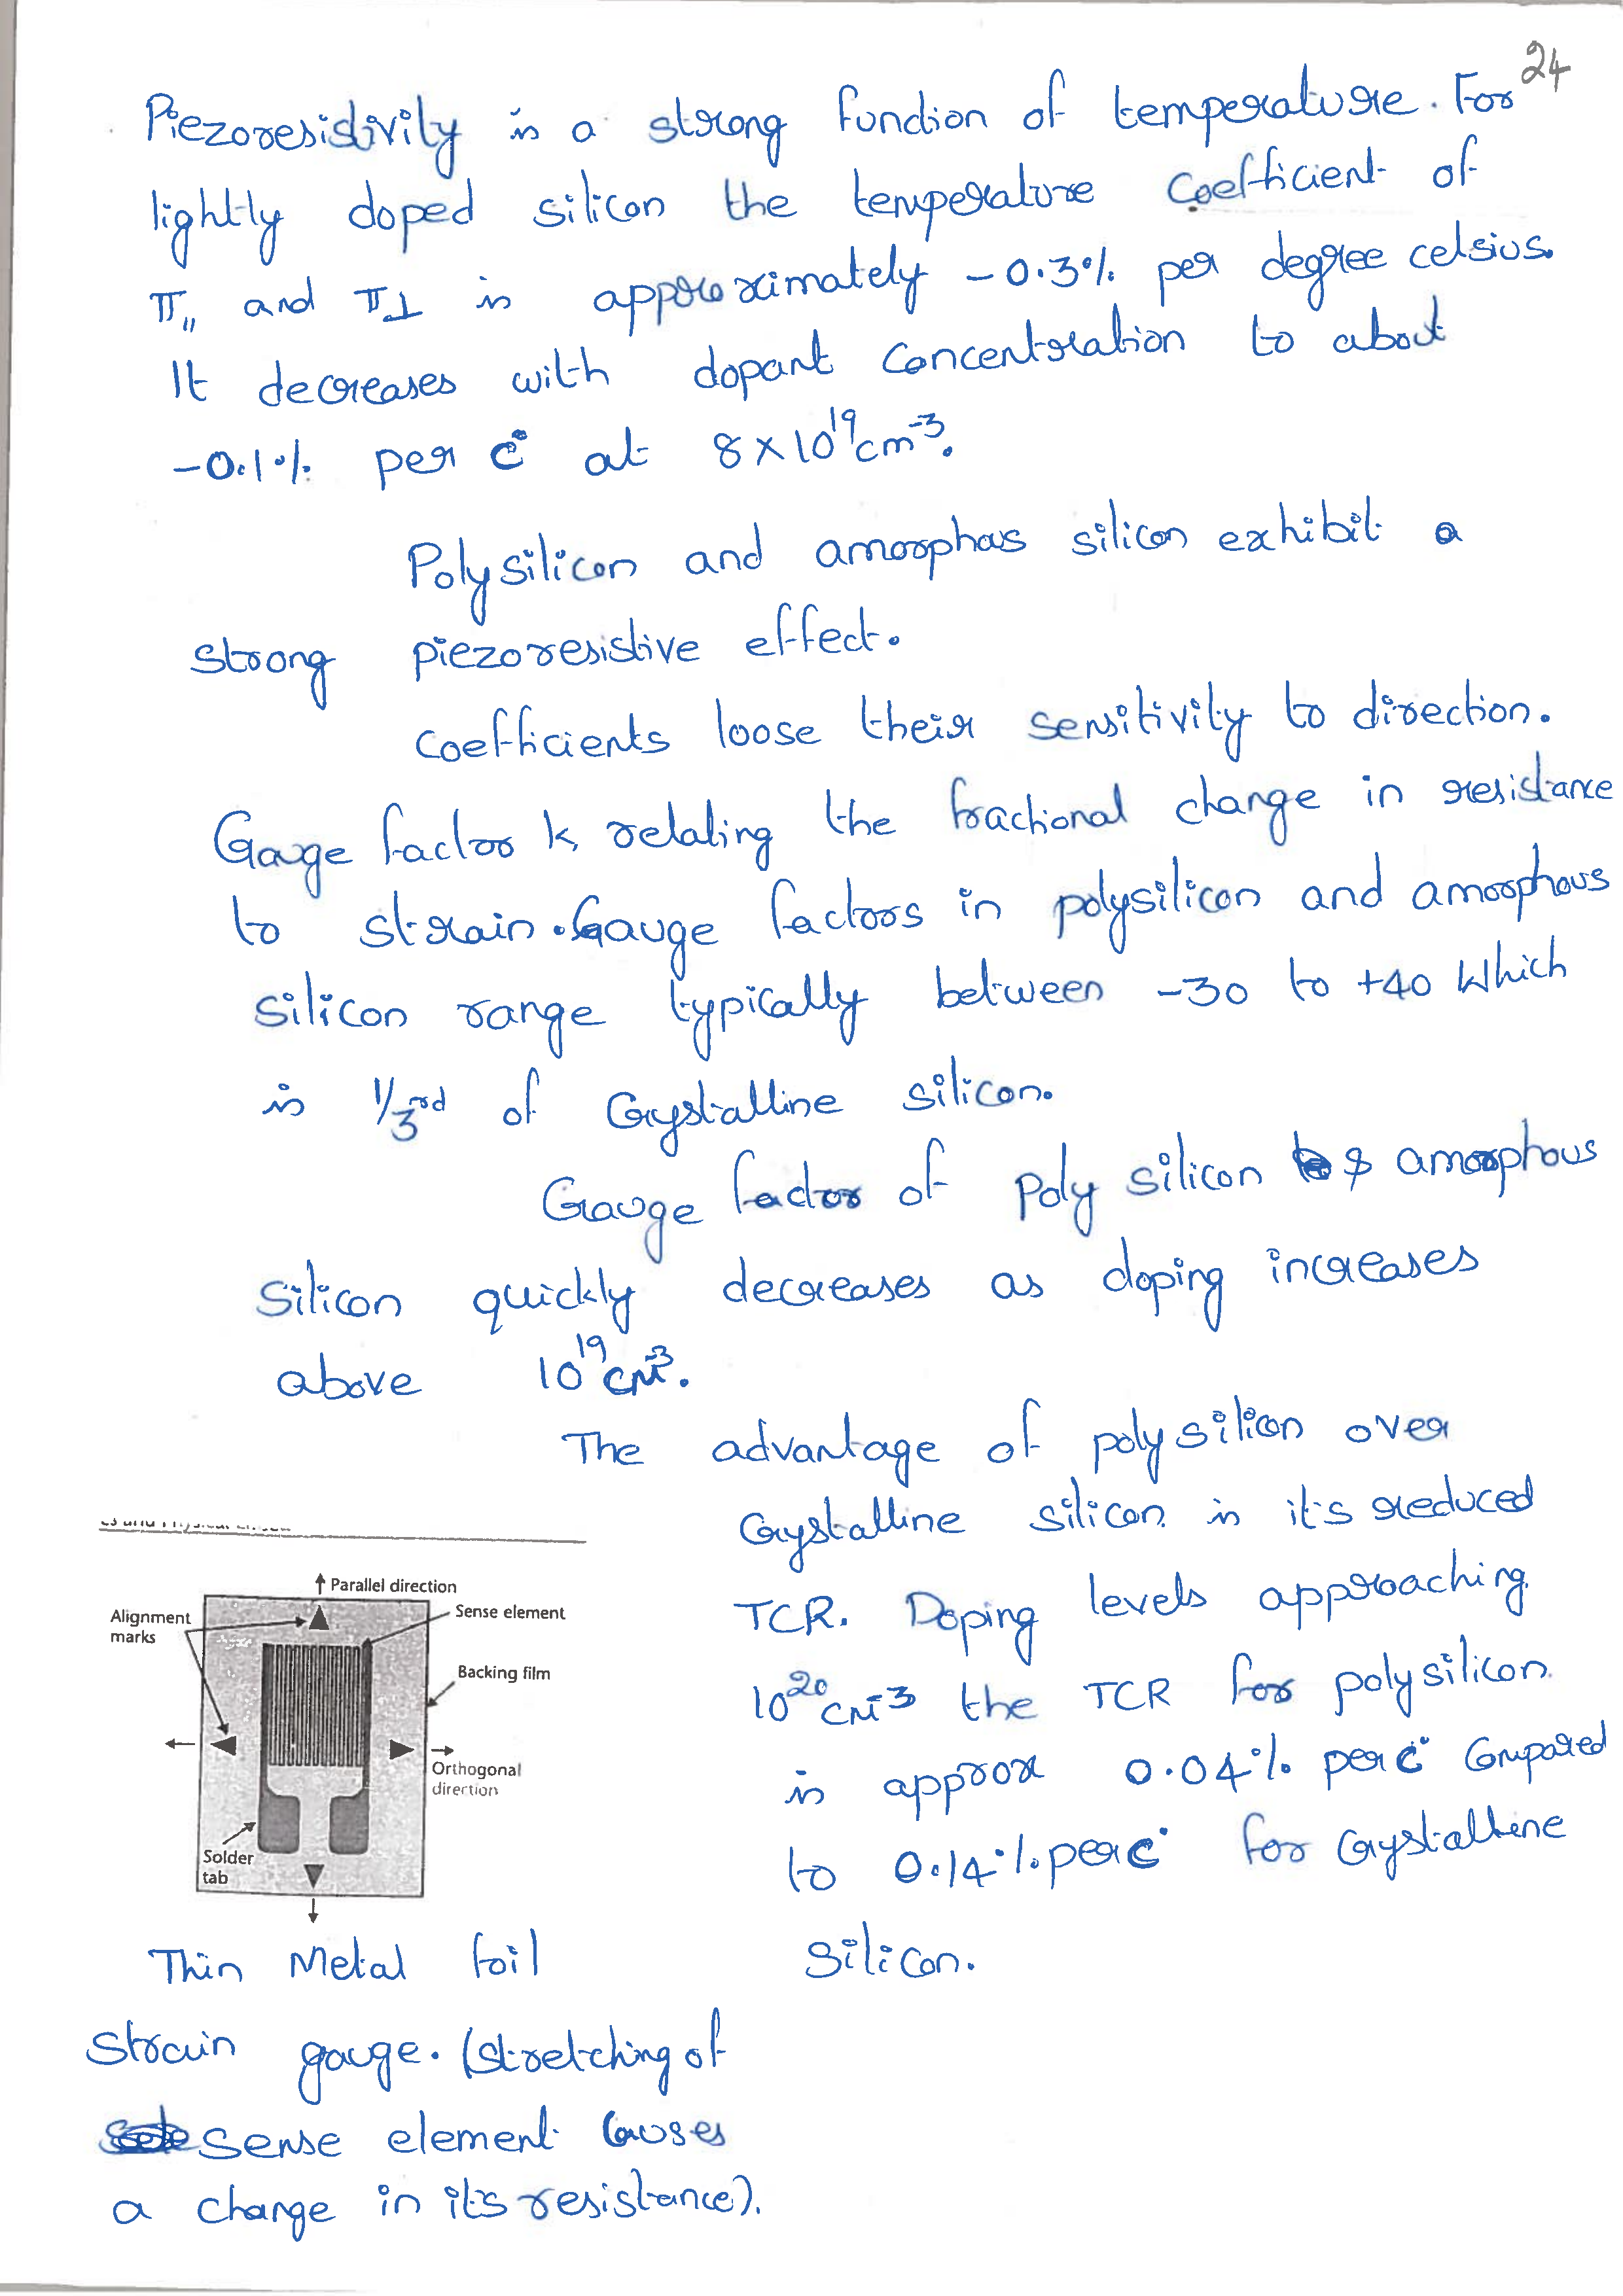 24
Piezoresistivity is a strong function of temperature. For
lightly doped silicon the temperature coefficient of
π,, and π⊥ is approximately -0.3% per degree celsius.
It decreases with dopant concentration to about
-0.1% per c° at 8×10¹⁹cm⁻³.
Polysilicon and amorphas silicon exhibit a
strong piezoresistive effect.
coefficients loose their sensitivity to direction.
Gauge factor k, relating the fractional change in resistance
to strain. Gauge factors in polysilicon and amorphous
silicon range typically between -30 to +40 which
is 1/3rd of crystalline silicon.
Gauge factor of poly silicon & amorphous
silicon quickly decreases as doping increases
above 10¹⁹cm⁻³.
The advantage of polysilicon over
crystalline silicon is it's reduced
TCR. Doping levels approaching
10²⁰cm⁻³ the TCR for polysilicon
is approx 0.04% per c° compared
to 0.14% per c° for crystalline
silicon.
Parallel direction
Alignment
marks
Sense element
Backing film
Orthogonal
direction
Solder
tab
Thin Metal foil
Strain gauge. (stretching of
sense element causes
a change in it's resistance).